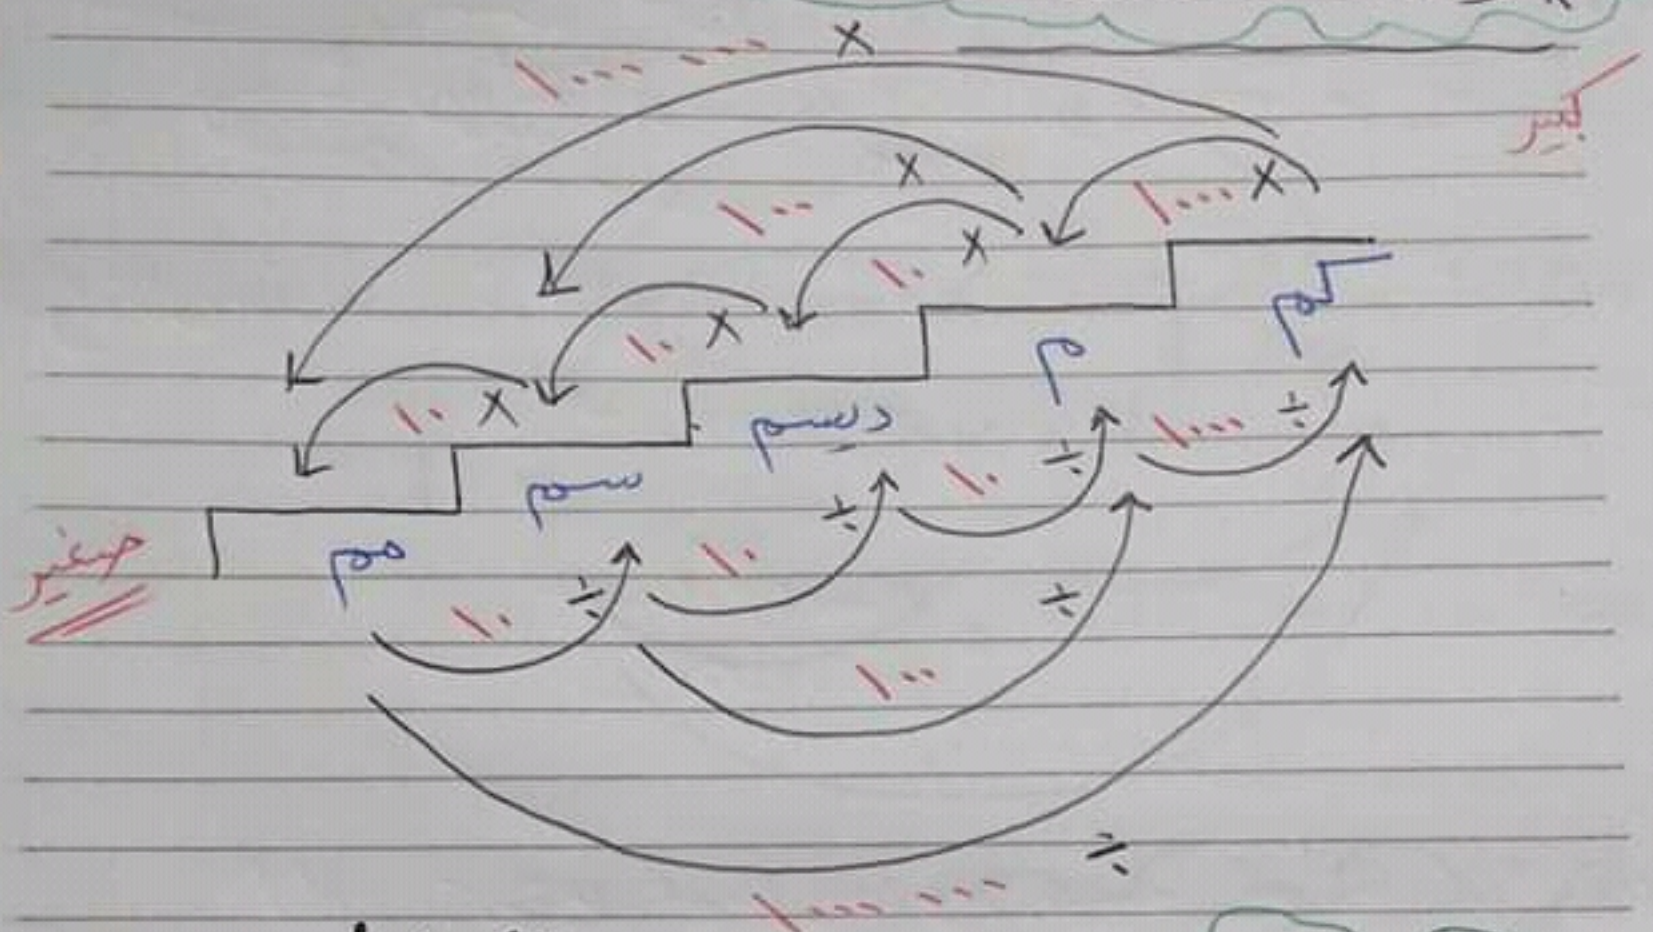 × ١٠٠٠ ٠٠٠
كبير
× ١٠٠٠
× ١٠٠
× ١٠
× ١٠
× ١٠
كم
م
ديسم
سم
مم
صغير
÷ ١٠٠٠
÷ ١٠
÷ ١٠
÷ ١٠
÷ ١٠٠
÷ ١٠٠٠ ٠٠٠